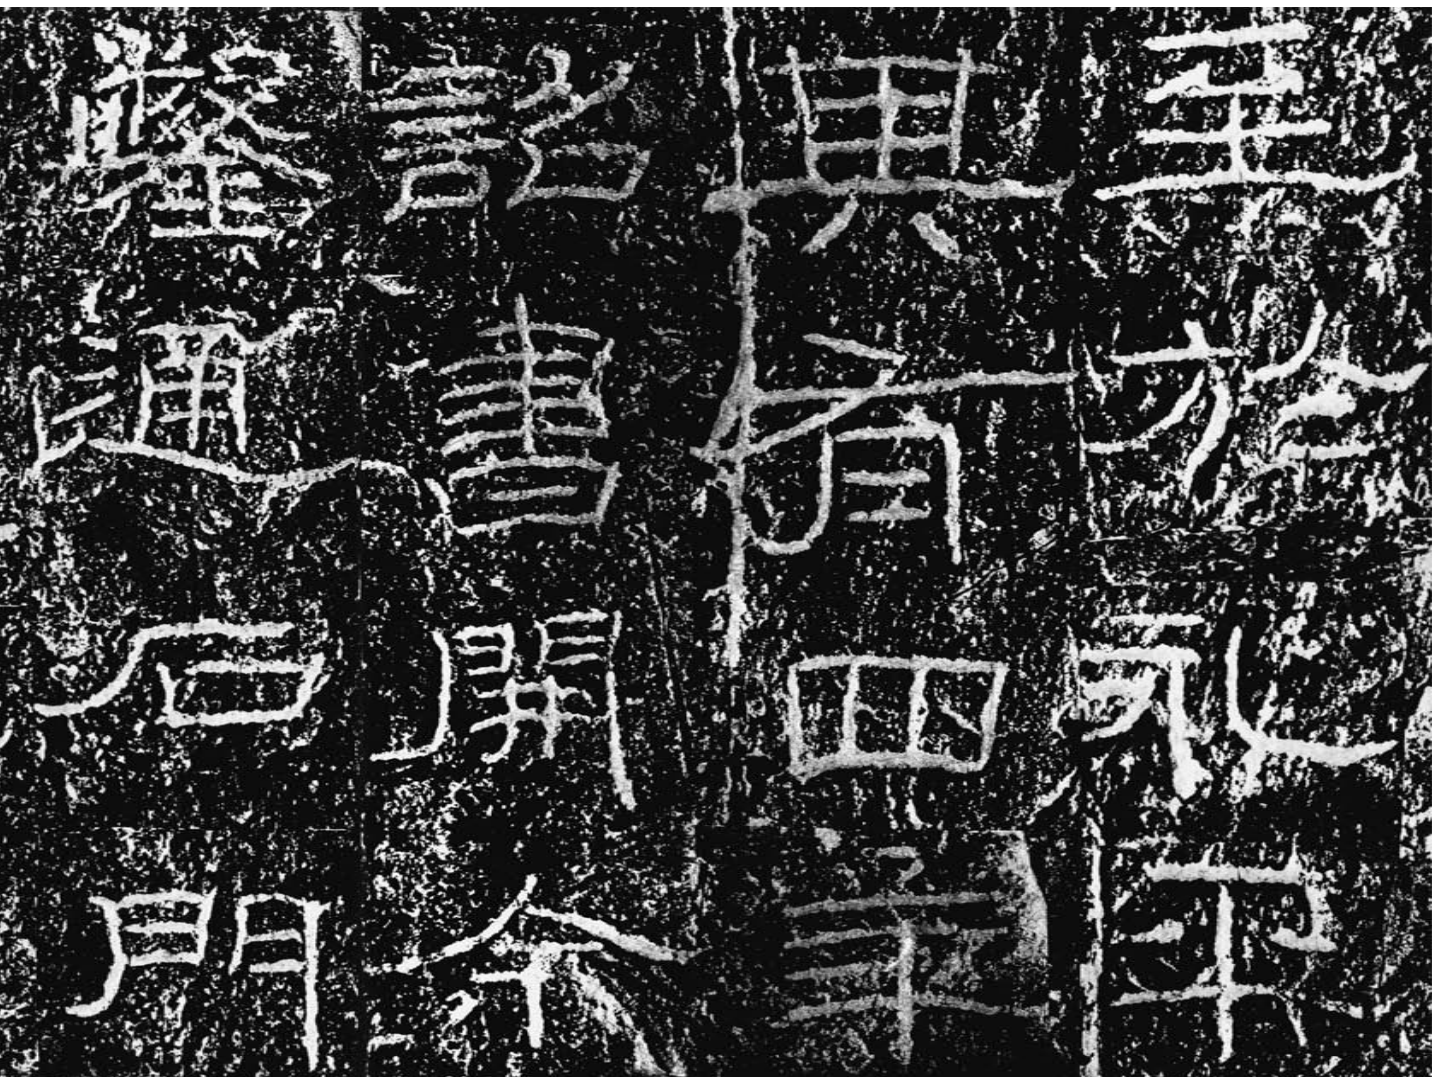 至於永平
其有四年
詔書開余
鑿通石門